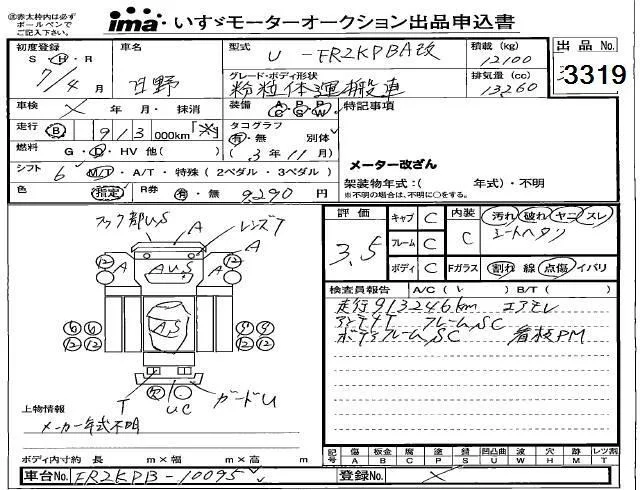 ㊟赤太枠内は必ず
ボールペンで
ご記入ください。
ima いすゞモーターオークション出品申込書
初度登録 S・H・R 7/4 月
車名 日野
型式 U-FR2KPBA改
積載 (kg) 12100
出品 No. 3319
グレード・ボディ形状 粉粒体運搬車
排気量 (cc) 13260
車検 × 年・月・抹消
装備 A/C P/S P/W
特記事項
走行 B 913 000km 「※」
タコグラフ 有・無 別体 (3年11月)
燃料 G・D・HV 他( )
メーター改ざん
シフト 6 M/T・A/T・特殊(2ペダル・3ペダル)
架装物年式:( 年式)・不明
※不明の場合は、年式欄に○をする。
色 指定 R券 有・無 9290 円
フック部U,S A レンズT
評価 3.5
キャブ C
内装 C
汚れ 破れ ヤニ スレ
シートヘタリ
フレーム C
ボディ C
Fガラス 割れ 線 点傷 イバリ
12 A AUS A 12
検査員報告 A/C( ) B/T( )
走行913246km エアモレ
アンテナT フレームSC
ボディフレームSC 看板PM
12 12 AS 12 12
T 欠 UC ガードU
上物情報
メーカー年式不明
ボディ内寸約 長 m×幅 m×高 m
記号 傷 A 板金 B 腐 C 塗 P 錆 S 凹凸曲 U 波 W 穴 H 跡 M レツ割 T
車台No. FR2KPB-10095
登録No. ×